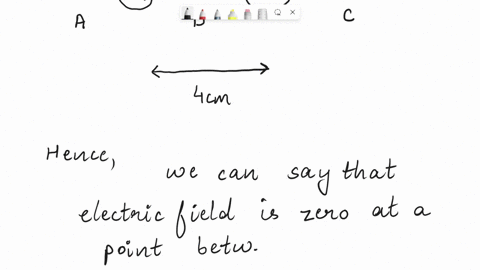 A C
4cm
Hence, we can say that
electric field is zero at a
point betw.